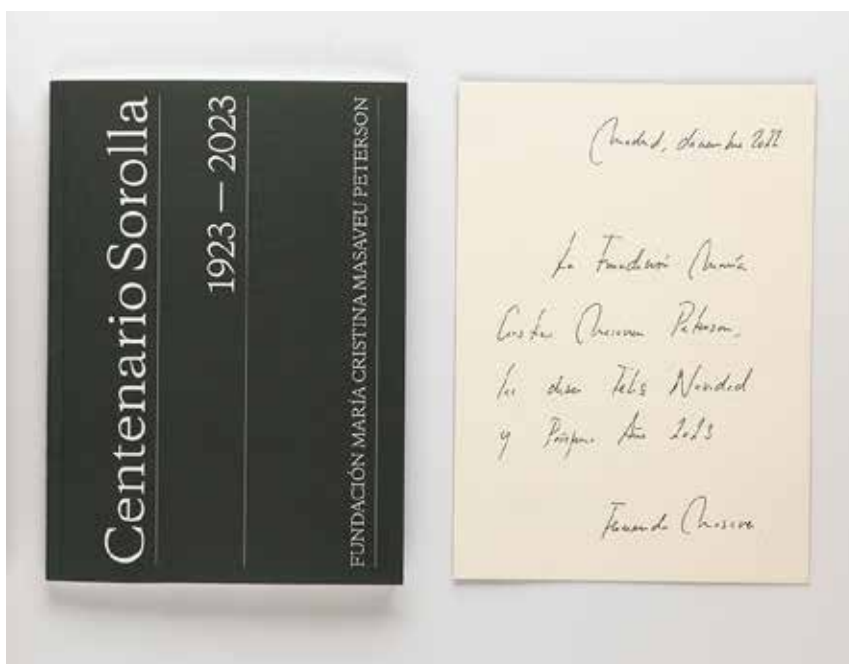 Centenario Sorolla
1923 – 2023
FUNDACIÓN MARÍA CRISTINA MASAVEU PETERSON
Madrid, diciembre 2022
La Fundación María
Cristina Masaveu Peterson,
les desea Feliz Navidad
y Próspero Año 2023
Fernando Masaveu